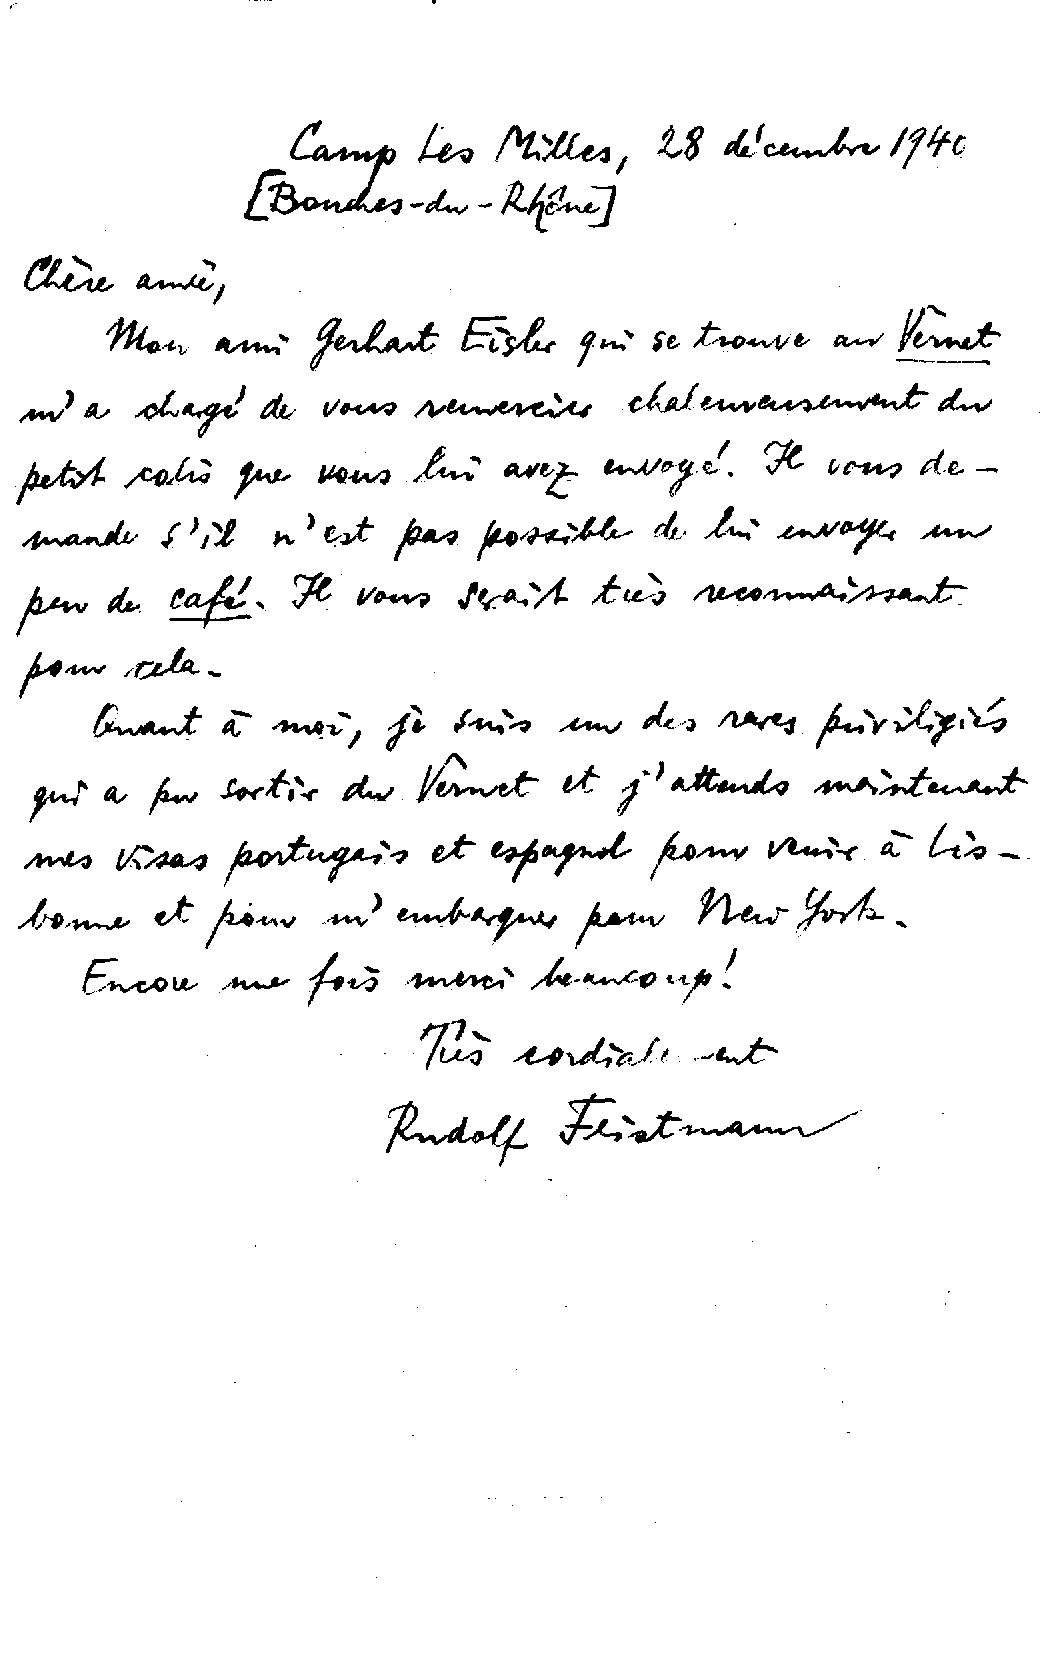 Camp Les Milles, 28 décembre 1940
[Bouches-du-Rhône]
Chère amie,
Mon ami Gerhart Eisler qui se trouve au Vernet
m'a chagé de vous remercier chaleureusement du
petit colis que vous lui avez envoyé. Il vous de-
mande s'il n'est pas possible de lui envoyer un
peu de café. Il vous serait très reconnaissant
pour cela.
Quant à moi, je suis un des rares priviligiés
qui a pu sortir du Vernet et j'attends maintenant
mes visas portugais et espagnol pour venir à Lis-
bonne et pour m'embarquer pour New York.
Encore une fois merci beaucoup!
Très cordialement
Rudolf Feistmann